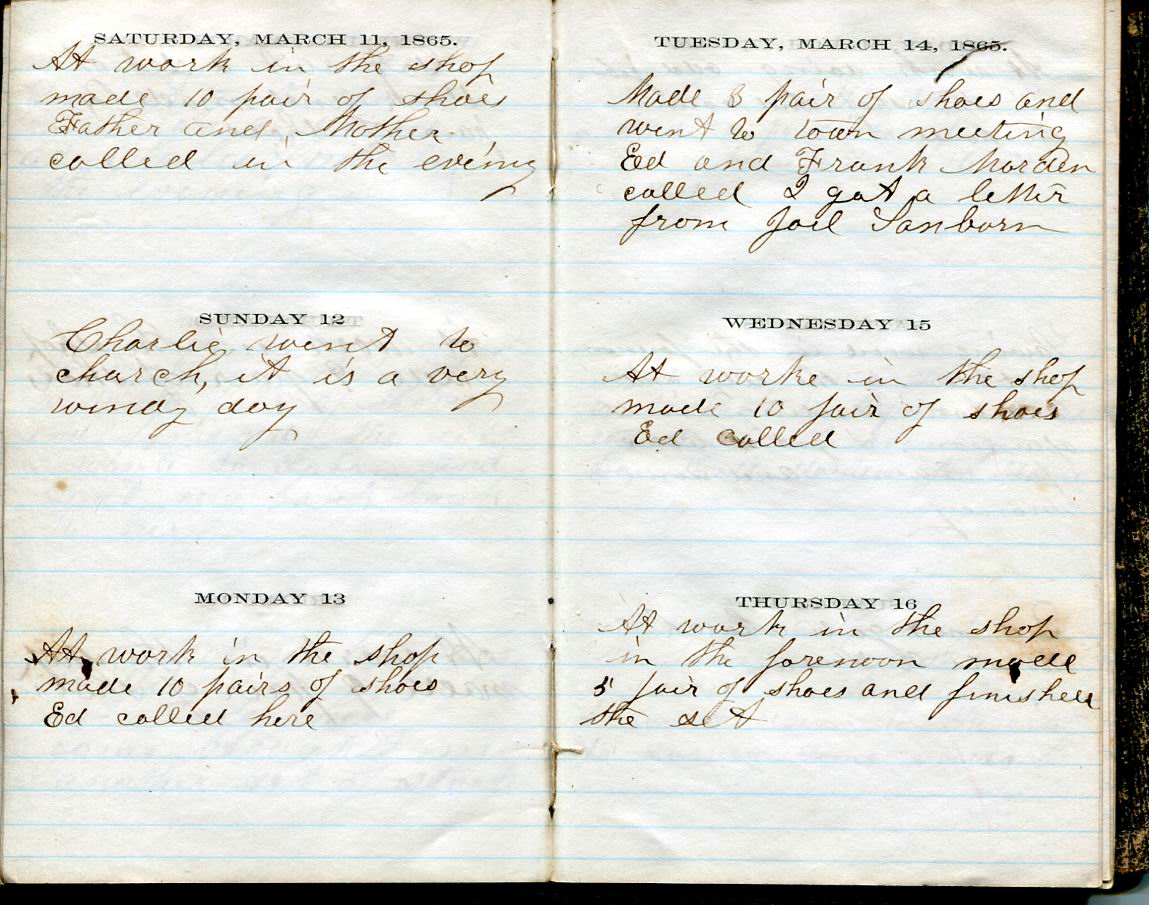 SATURDAY, MARCH 11, 1865.
At work in the shop
made 10 pair of shoes
Father and Mother
called in the evening
SUNDAY 12
Charlie went to
church, it is a very
windy day
MONDAY 13
At work in the shop
made 10 pairs of shoes
Ed called here
TUESDAY, MARCH 14, 1865.
Made 8 pair of shoes and
went to town meeting
Ed and Frank Morden
called I got a letter
from Joel Sanborn
WEDNESDAY 15
At worke in the shop
made 10 pair of shoes
Ed called
THURSDAY 16
At work in the shop
in the forenoon made
5 pair of shoes and finished
the set